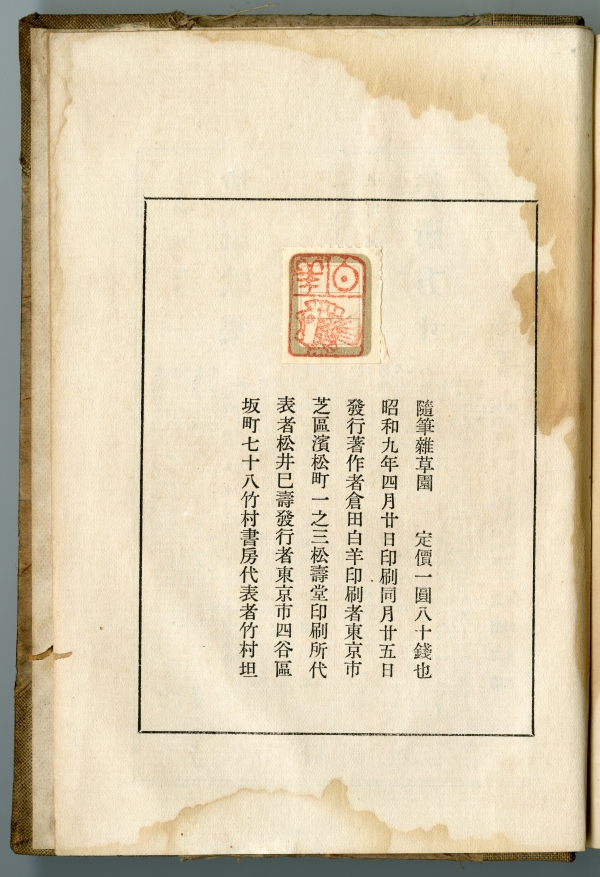 白羊
隨筆雜草園　定價一圓八十錢也
昭和九年四月廿日印刷同月廿五日
發行著作者倉田白羊印刷者東京市
芝區濱松町一之三松壽堂印刷所代
表者松井巳壽發行者東京市四谷區
坂町七十八竹村書房代表者竹村坦